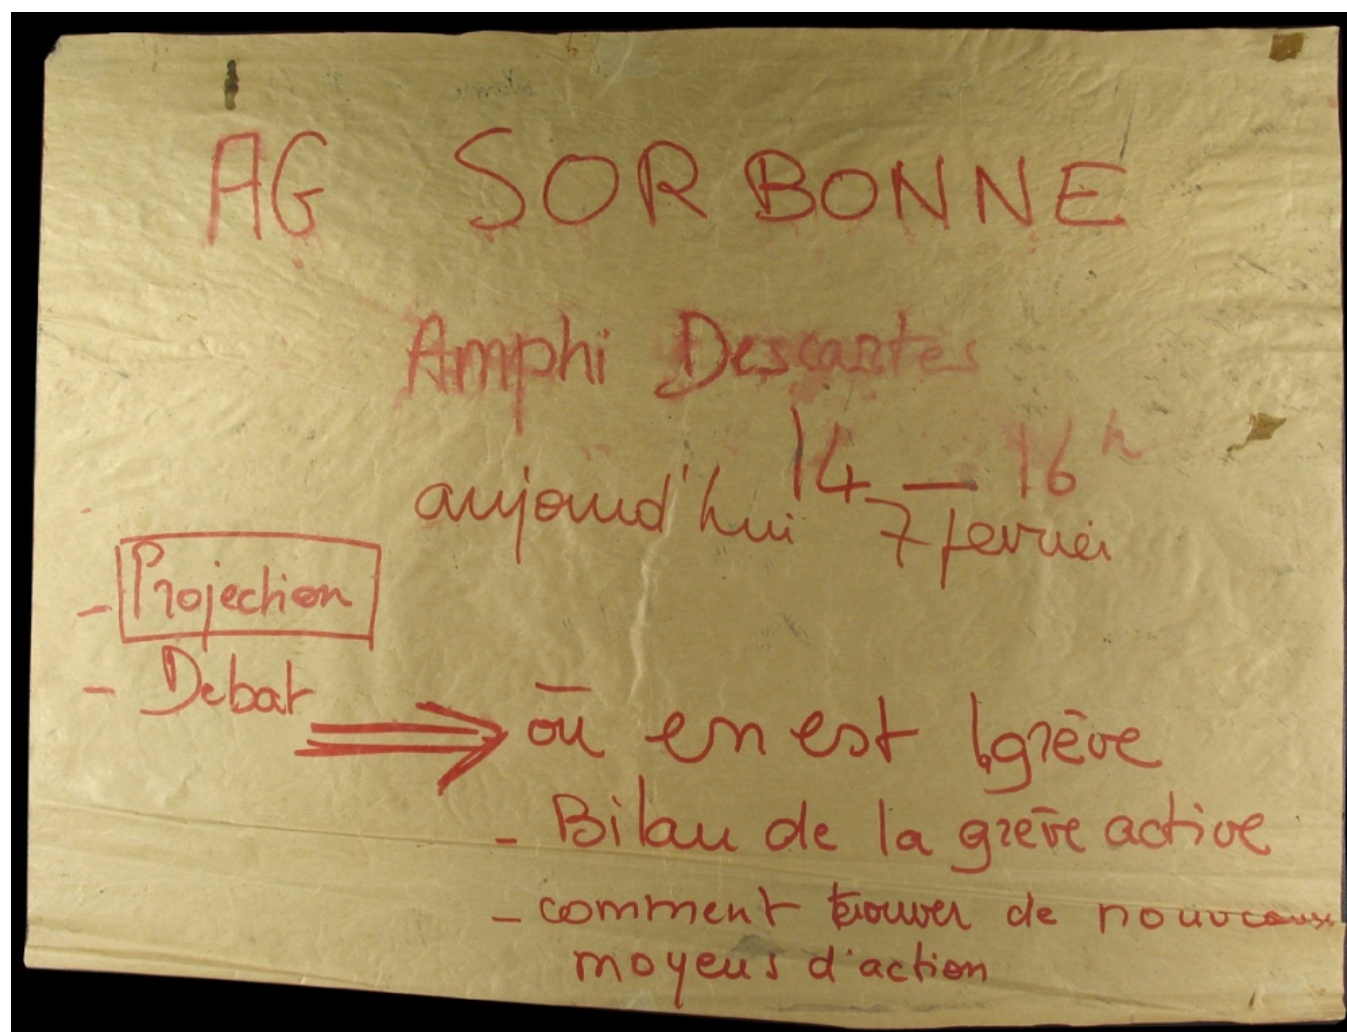 AG SORBONNE
Amphi Descartes
14 — 16h
aujourd'hui 7 fevrier
- Projection
- Debat
⇒ où en est la grève
- Bilan de la grève active
- comment trouver de nouveaux
moyens d'action